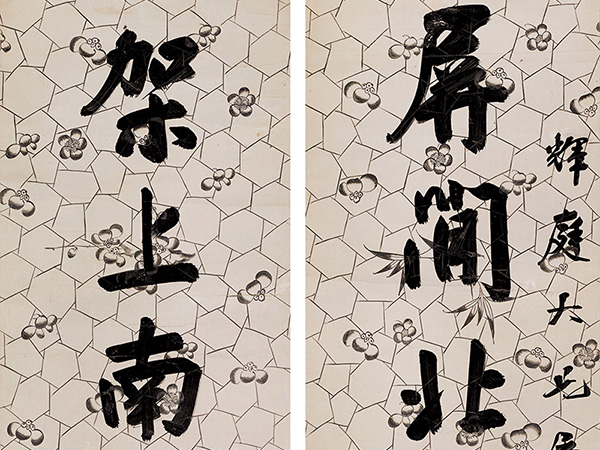 輝庭大兄
屏間北
架上南